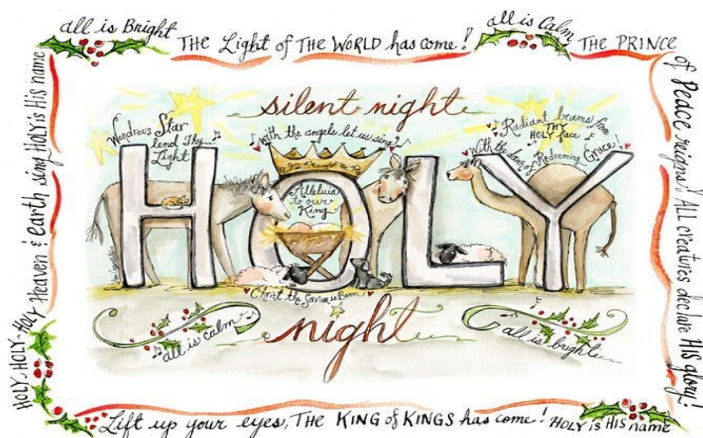 all is Bright
THE Light of THE WORLD has come!
all is Calm
THE PRINCE
of Peace reigns! All creatures declare HIS glory!
HOLY IS HIS name
Lift up your eyes, THE KING of KINGS has come!
HOLY-HOLY-HOLY Heaven & earth, sing HOLY is His name
silent night
Wondrous Star
lend Thy
Light
with the angels let us sing
Radiant beams from
THY
HOLY face
With the dawn of
Redeeming
Grace!
HOLY
Alleluia
to our
King
Christ the Savior is Born
night
all is calm
all is bright